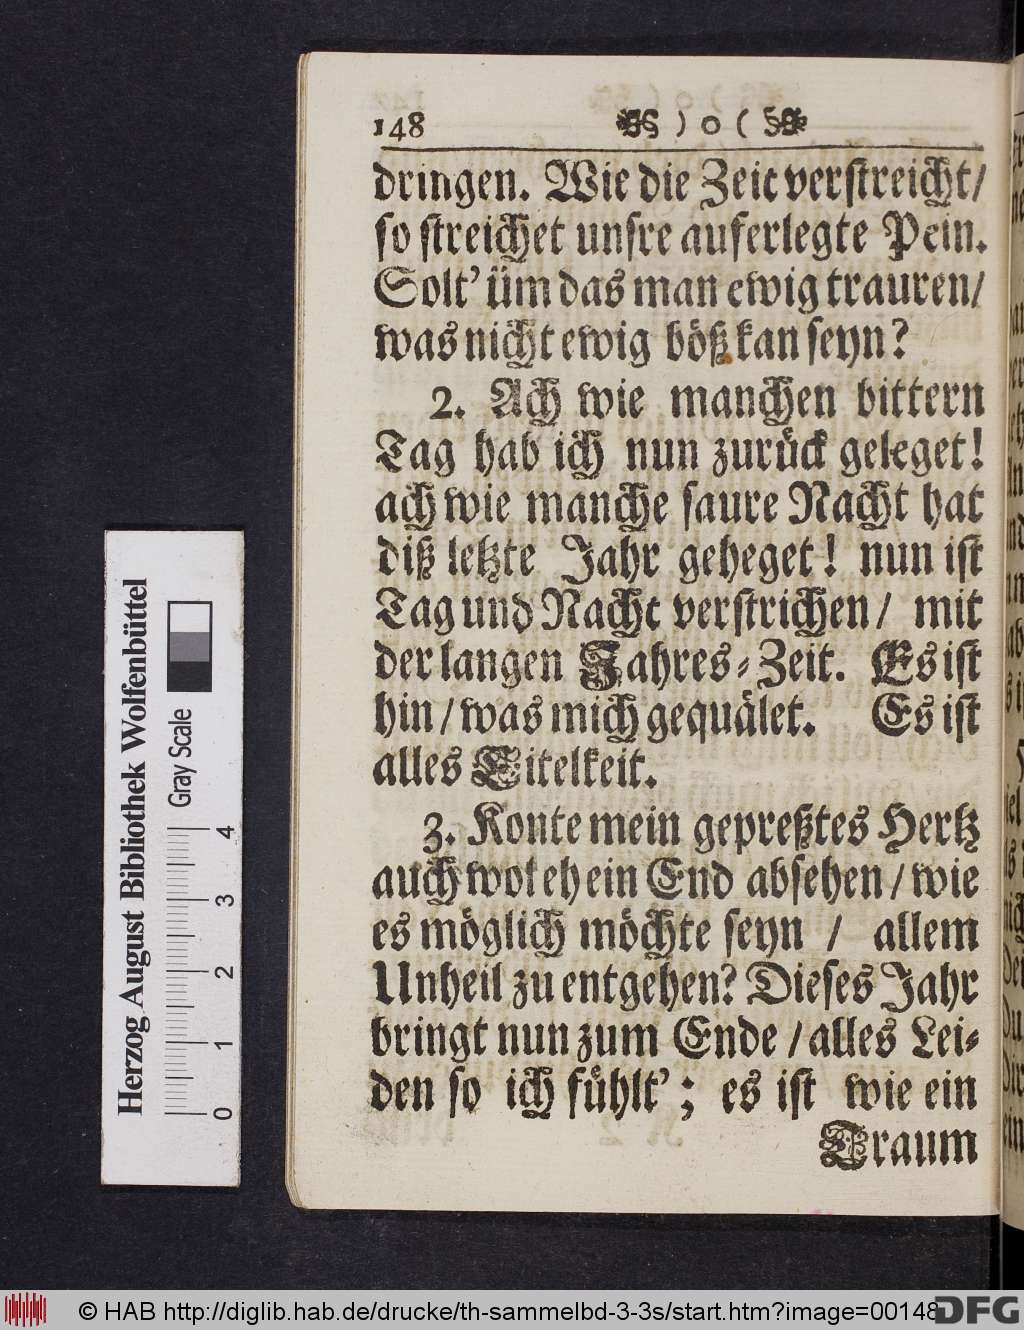 148 ) o (
dringen. Wie die Zeit verstreicht/
so streichet unsre auferlegte Pein.
Solt' üm das man ewig trauren/
was nicht ewig böß kan seyn?
2. Ach wie manchen bittern
Tag hab ich nun zurück geleget!
ach wie manche saure Nacht hat
diß letzte Jahr geheget! nun ist
Tag und Nacht verstrichen/ mit
der langen Jahres-Zeit. Es ist
hin/ was mich gequälet. Es ist
alles Eitelkeit.
3. Konte mein gepreßtes Hertz
auch wol eh ein End absehen/ wie
es möglich möchte seyn / allem
Unheil zu entgehen? Dieses Jahr
bringt nun zum Ende / alles Lei-
den so ich fühlt'; es ist wie ein
Traum
Herzog August Bibliothek Wolfenbüttel
Gray Scale
0 1 2 3 4
© HAB http://diglib.hab.de/drucke/th-sammelbd-3-3s/start.htm?image=00148
DFG